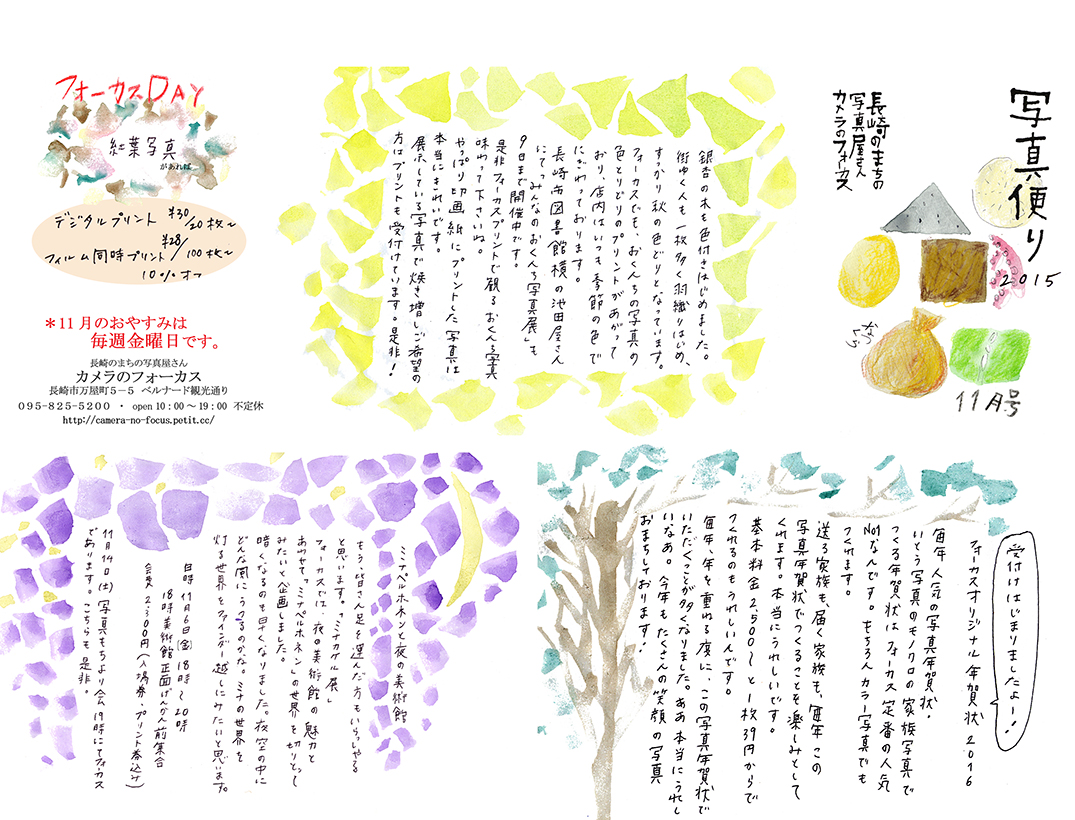 写真便り
2015
長崎のまちの
写真屋さん
カメラのフォーカス
11月号
銀杏の木も色付きはじめました。
街ゆく人も一枚多く羽織りはじめ、
すっかり秋の色どりとなっています。
フォーカスでも、おくんちの写真の
色とりどりのプリントがあがって
おり、店内はいつも季節の色で
にぎわっております。
長崎市図書館横の池田屋さん
にて「みんなのおくんち写真展」も
9日まで開催中です。
是非フォーカスプリントで観るおくんち写真
味わって下さいね。
やっぱり印画紙にプリントした写真は
本当にきれいです。
展示している写真で焼き増しご希望の
方はプリントも受付けています。是非!
フォーカスDAY
紅葉写真
があれば
デジタルプリント ¥30/20枚〜
フィルム同時プリント ¥28/100枚〜
10%オフ
＊11月のおやすみは
毎週金曜日です。
長崎のまちの写真屋さん
カメラのフォーカス
長崎市万屋町5−5 ベルナード観光通り
095-825-5200 ・ open 10：00〜19：00 不定休
http://camera-no-focus.petit.cc/
受付けはじまりましたよー!
フォーカスオリジナル年賀状2016
毎年人気の写真年賀状。
いとう写真のモノクロの家族写真で
つくる年賀状は、フォーカス定番の人気
No1なんです。もちろんカラー写真でも
つくれます。
送る家族も、届く家族も、毎年この
写真年賀状でつくることを楽しみとして
くれます。本当にうれしいです。
基本料金2,500〜と1枚39円からで
つくれるのもうれしいんです。
毎年、年を重ねる度に、この写真年賀状で
いただくことが多くなりました。ああ本当にうれし
いなあ。今年もたくさんの笑顔の写真
おまちしております!
ミナペルホネンと夜の美術館
もう、皆さん足を運んだ方もいらっしゃる
と思います。“ミナカケル”展
フォーカスでは、夜の美術館の魅力と
あわせて、ミナペルホネンの世界を切りとって
みたいと企画しました。
暗くなるのも早くなりました。夜空の中に
どんな風にうつるのかな。ミナの世界を
灯る世界をファインダー越しにみたいと思います。
日時 11月6日(金) 18時〜20時
18時美術館正面げんかん前集合
会費 2,300円(入場券、プリント券込み)
11月14日(土)写真もちより会 19時にてフォーカス
であります。こちらも是非。